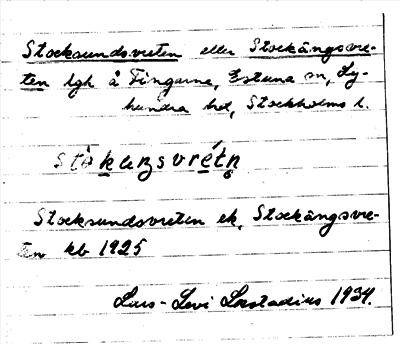 Stocksundsvreten eller Stockängsvre-
ten lgh å Fingarne, Estuna sn, Ly-
hundra hd, Stockholms l.
Stocksundsvreten ek, Stockängsvre-
ten kb 1925
Lars-Levi Læstadius 1934.